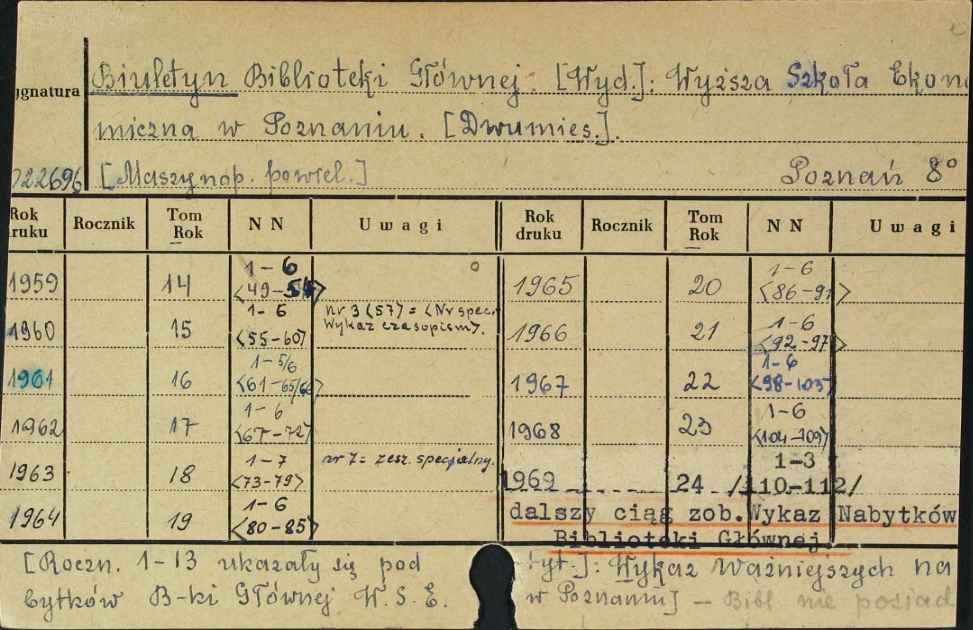 Biuletyn Biblioteki Głównej. [Wyd.]: Wyższa Szkoła Ekono
ygnatura
miczna w Poznaniu. [Dwumies.].
722696 [Maszynop. powiel.] Poznań 8°
Rok druku Rocznik Tom Rok NN Uwagi Rok druku Rocznik Tom Rok NN Uwagi
1959 14 1-6 <49-54> 1965 20 1-6 <86-91>
1960 15 1-6 <55-60> nr 3 (57) = <Nr spec. Wykaz czasopism>. 1966 21 1-6 <92-97>
1961 16 1-5/6 <61-65/66> 1967 22 1-6 <98-103>
1962 17 1-6 <67-72> 1968 23 1-6 <104-109>
1963 18 1-7 <73-79> nr 7 = zesz. specjalny. 1969 24 1-3 /110-112/
1964 19 1-6 <80-85> dalszy ciąg zob. Wykaz Nabytków
Biblioteki Głównej.
[Roczn. 1-13 ukazały się pod tyt.]: Wykaz Ważniejszych na
bytków B-ki Głównej W.S.E. w Poznaniu] - Bibl nie posiad